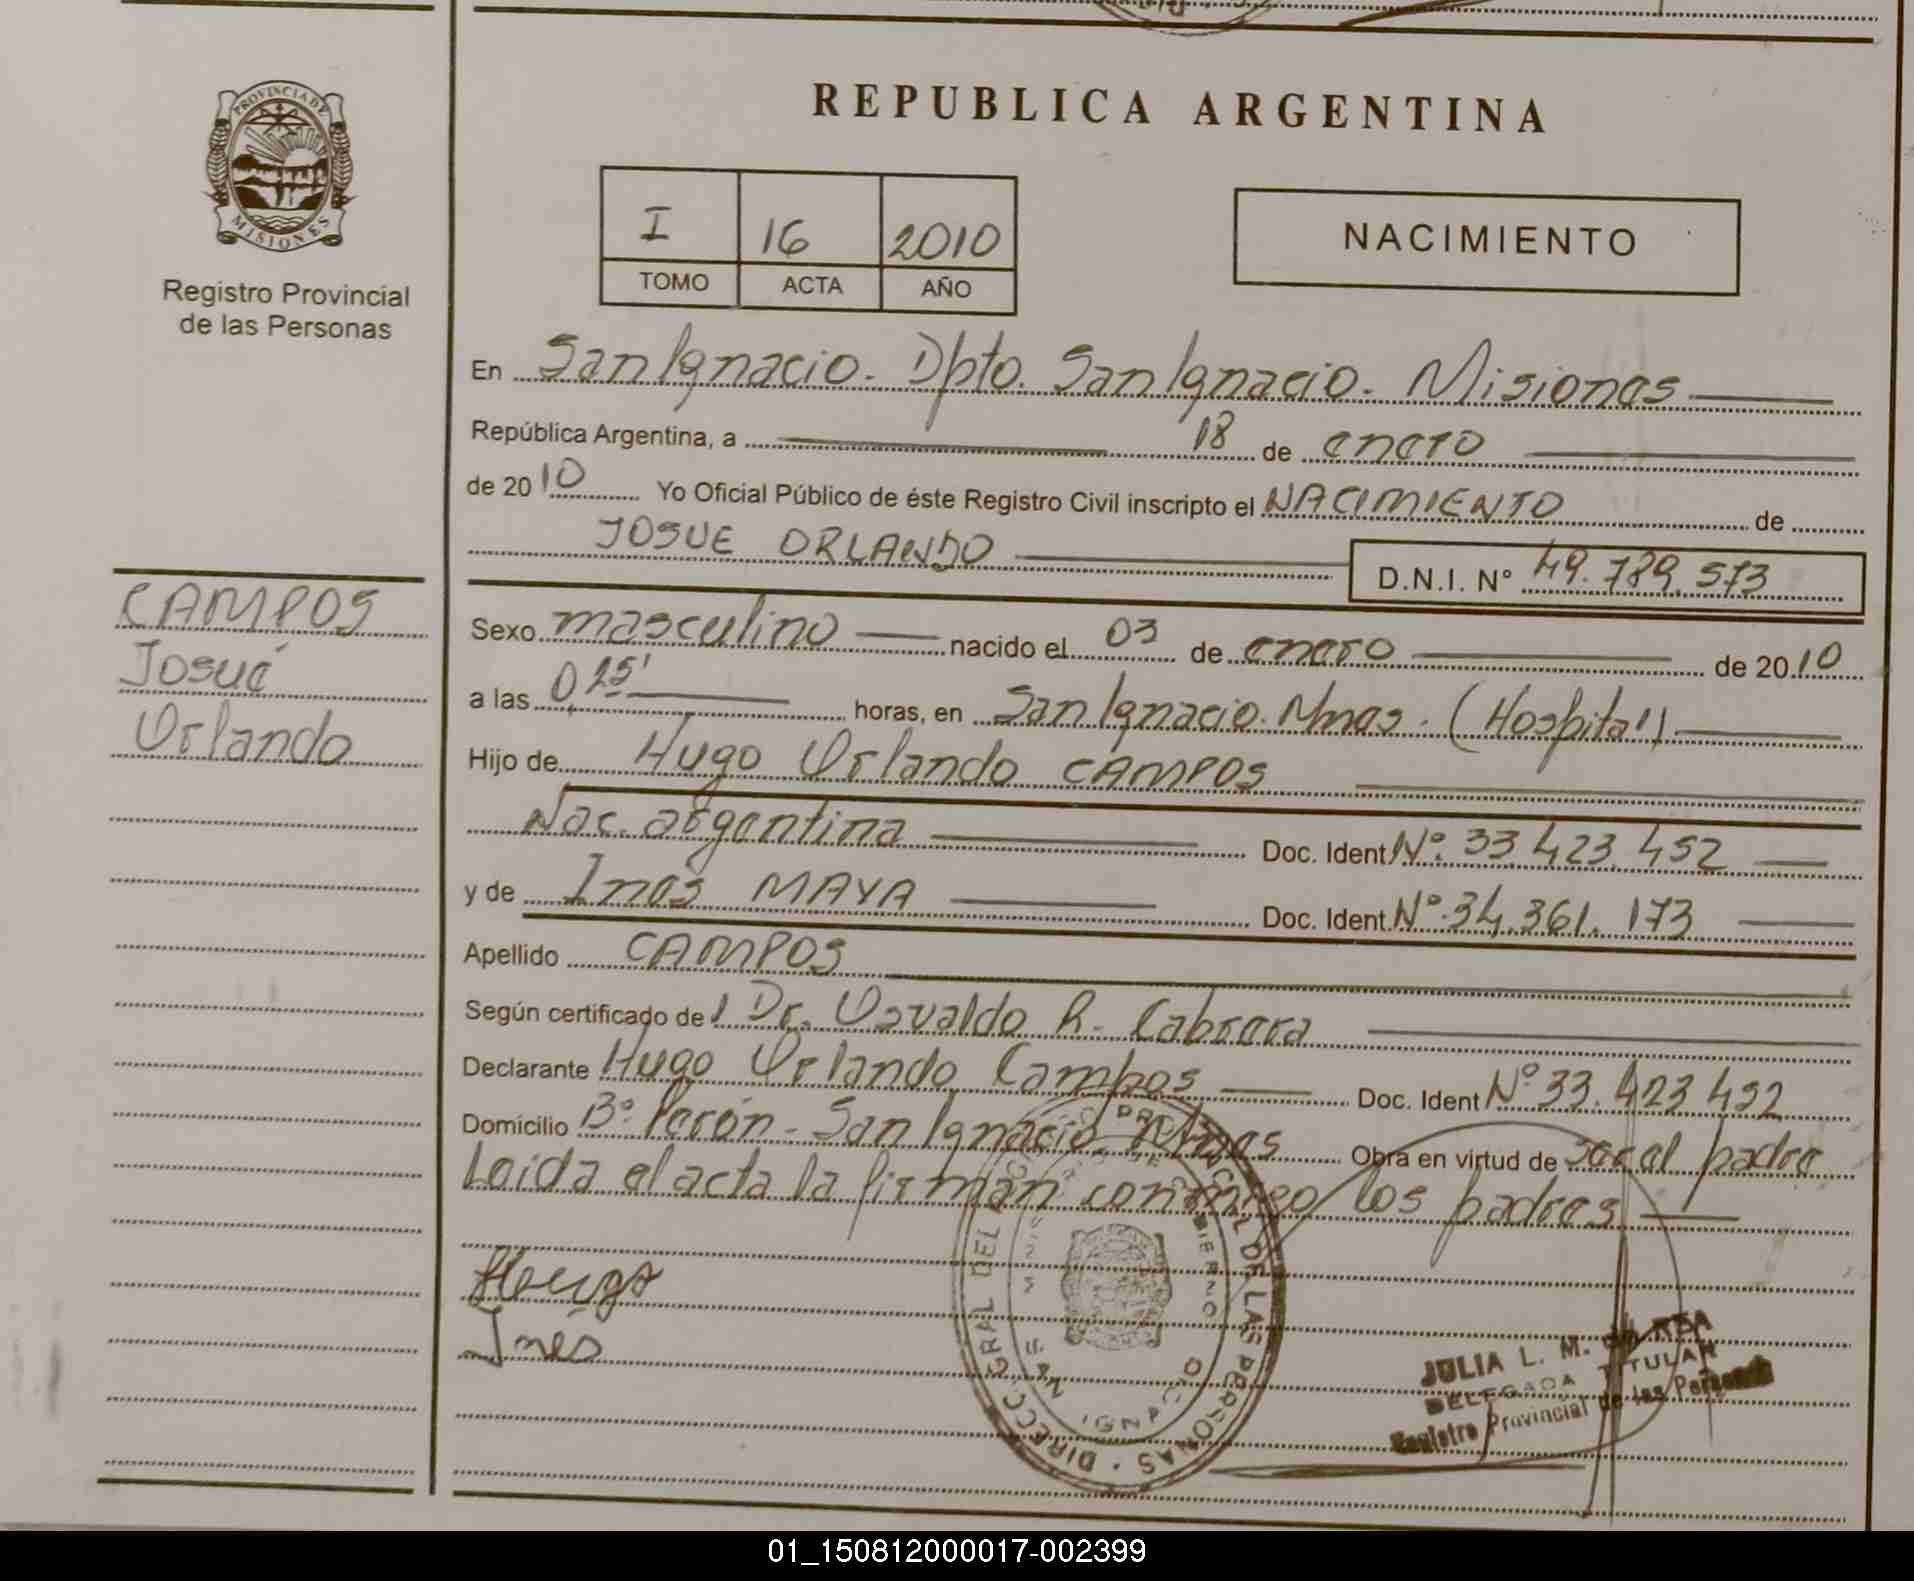 REPUBLICA ARGENTINA
PROVINCIA DE
MISIONES
Registro Provincial
de las Personas
I 16 2010
TOMO ACTA AÑO
NACIMIENTO
En San Ignacio. Dpto. San Ignacio. Misiones
República Argentina, a 18 de enero
de 2010 Yo Oficial Público de éste Registro Civil inscripto el NACIMIENTO de
JOSUE ORLANDO D.N.I. N° 49.789.573
CAMPOS
Josué
Orlando
Sexo masculino nacido el 03 de enero de 2010
a las 0,25' horas, en San Ignacio. Mnes. (Hospital)
Hijo de Hugo Orlando CAMPOS
Nac. argentina Doc. Ident N°. 33.423.452
y de Ines MAYA Doc. Ident. N°. 34.361.173
Apellido CAMPOS
Según certificado del Dr. Osvaldo R. Cabrera
Declarante Hugo Orlando Campos Doc. Ident N° 33.423 452
Domicilio B° Perón - San Ignacio Mnes Obra en virtud de ser el padre
Leida el acta la firman conmigo los padres
Hugo
Inés
DIRECC. GRAL DEL REGISTRO PROVINCIAL DE LAS PERSONAS
SAN IGNACIO
JULIA L. M.
DELEGADA TITULAR
Registro Provincial de las Personas
01_150812000017-002399